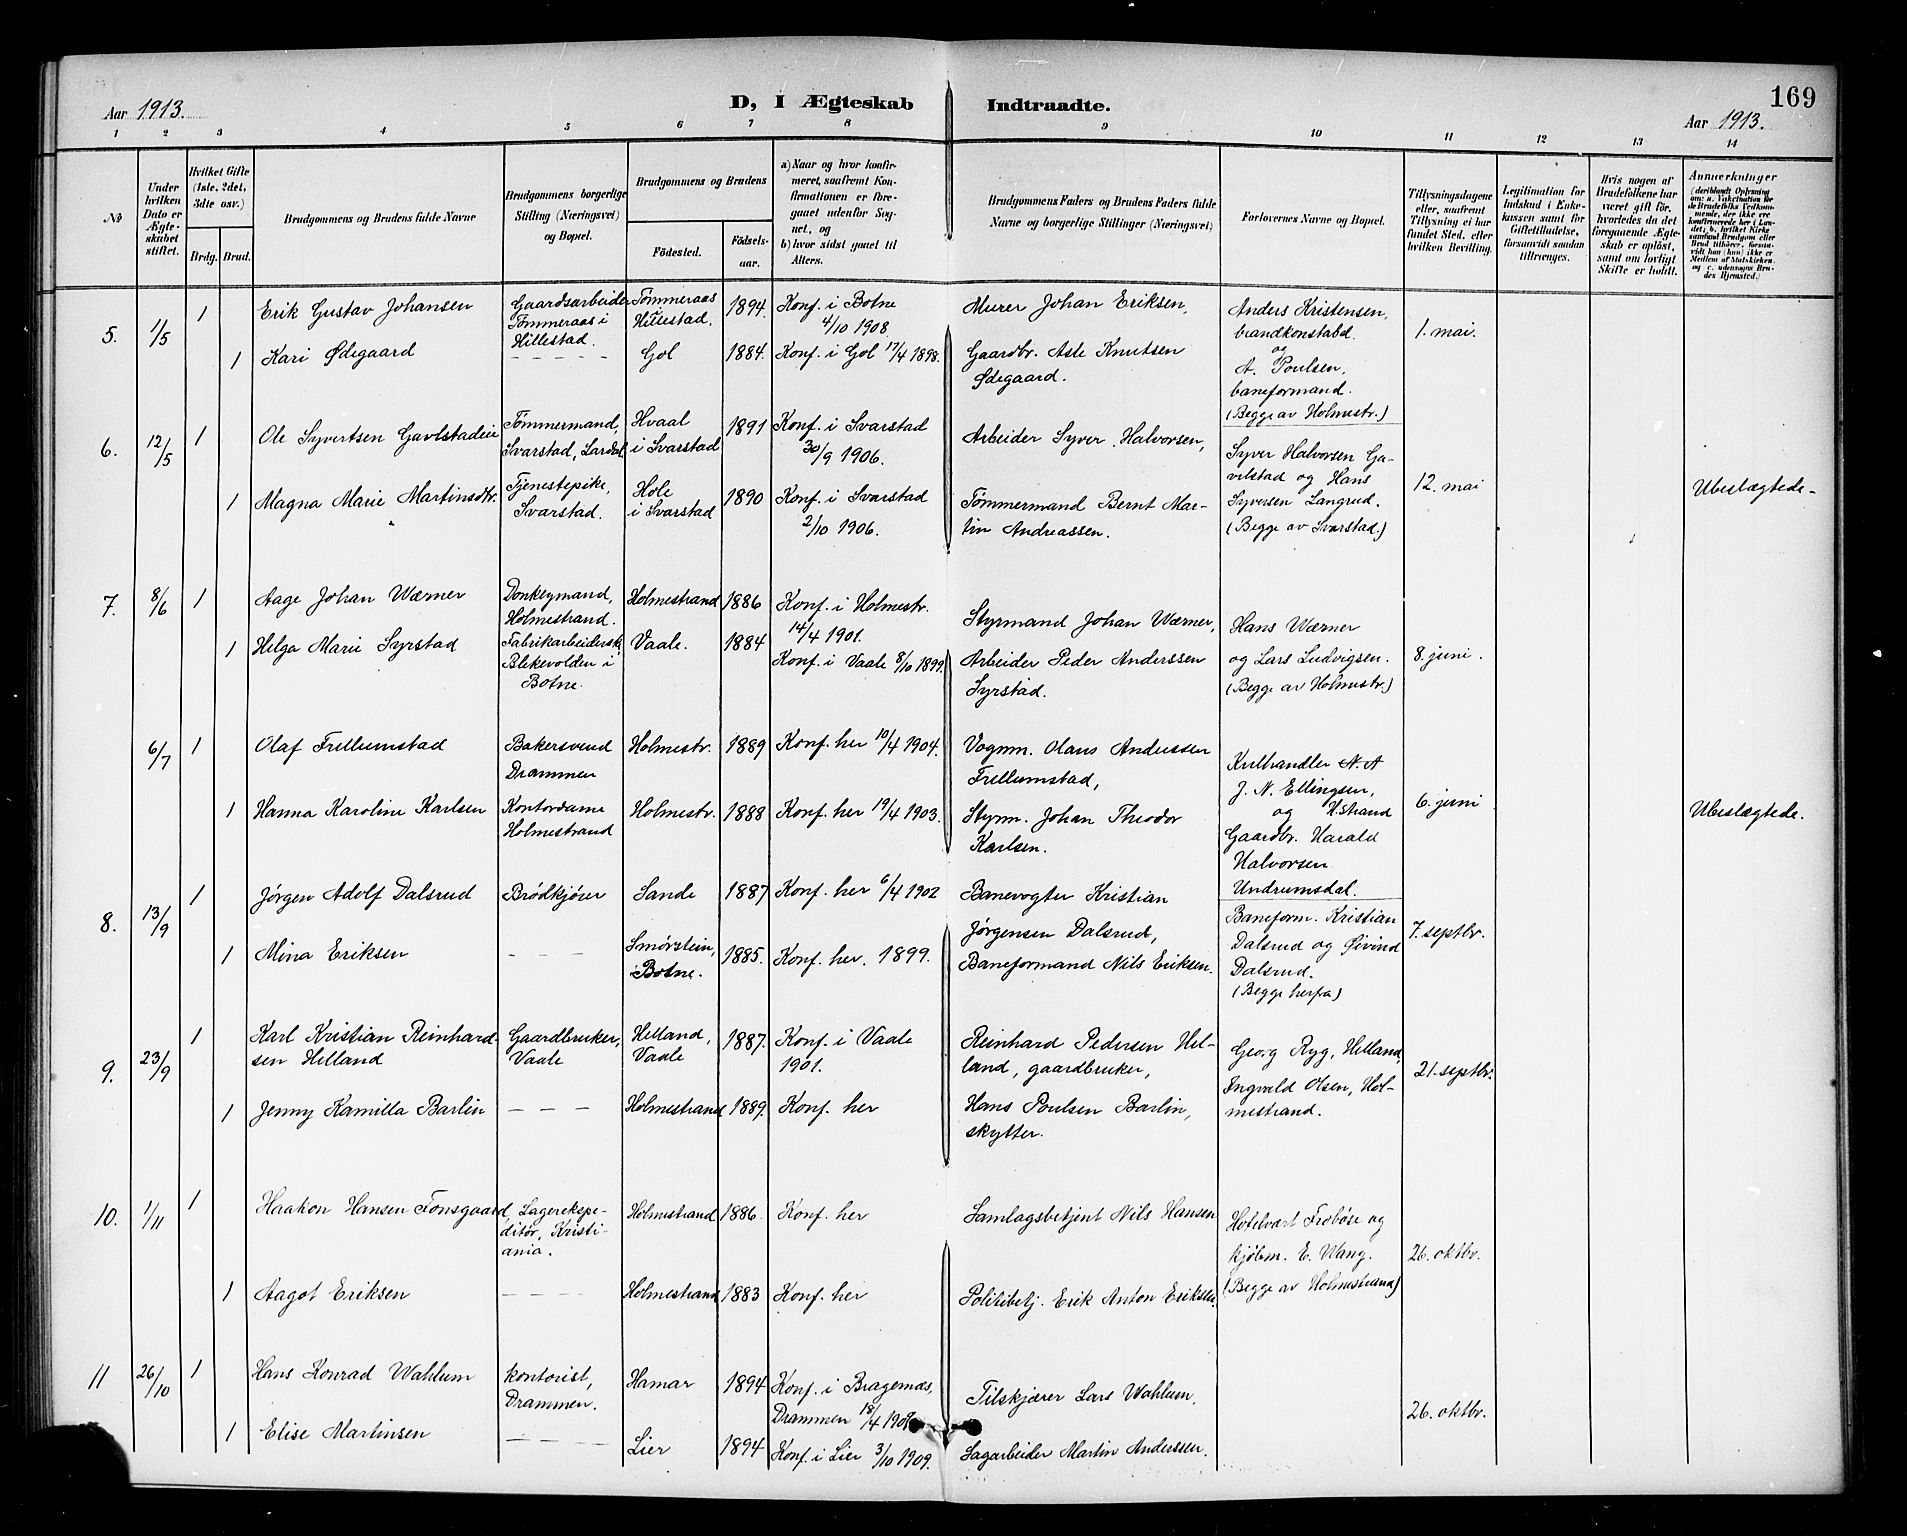 169
Aar 1913.
D, I Ægteskab
Indtraadte.
Aar 1913.
1 2 3 4 5 6 7 8 9 10 11 12 13 14
No
Under
hvilken
Dato er
Ægte-
skabet
stiftet.
Hvilket Gifte
(1ste, 2det,
3dte osv.)
Brdg. Brud.
Brudgommens og Brudens fulde Navne
Brudgommens borgerlige
Stilling (Næringsvei)
og Bopæl.
Brudgommens og Brudens
Födested.
Födsels-
aar.
a) Naar og hvor konfir-
meret, saafremt Kon-
firmationen er fore-
gaaet udenför Sog-
net, og
b) hvor sidst gaaet til
Alters.
Brudgommens Faders og Brudens Faders fulde
Navne og borgerlige Stillinger (Næringsvei)
Forlovernes Navne og Bopæl.
Tillysningsdagene
eller, saafremt
Tillysning ei har
fundet Sted, efter
hvilken Bevilling.
Legitimation for
Indskud i Enke-
kassen samt for
Giftetilladelse,
forsaavidt saadan
tiltrænges.
Hvis nogen af
Brudefolkene har
været gift för,
hvorledes da det
foregaaende Ægte-
skab er oplöst,
samt om lovligt
Skifte er holdt.
Anmærkninger
(deriblandt Oplysning
om: a. Vakcination for
de Brudefolks Vedkom-
mende, der ikke ere
konfirmerede her i Lan-
det; b. hvilket Kirke-
samfund Brudgom eller
Brud tilhörer, forsaa-
vidt han (hun) ikke er
Medlem af Statskirken,
og c. udensogns Bru-
des Hjemsted.)
5. 1/5 1 Erik Gustav Johansen
Gaardsarbeider
Tømmeraas i
Hillestad.
Tømmeraas
Hillestad.
1894. Konf. i Botne
4/10 1908.
Murer Johan Eriksen,
Anders Kristensen,
brandkonstabel.
og
A. Poulsen,
baneformand.
(Begge av Holmestr.)
1. mai.
1 Kari Ødegaard
— — — —
Gol 1884. Konf. i Gol 17/4 1898.
Gaardbr. Asle Knutsen
Ødegaard.
6. 12/5 1 Ole Syvertsen Gavlstadeie
Tømmermand,
Svarstad, Lardal.
Hvaal
i Svarstad
1891 Konf. i Svarstad
30/9 1906.
Arbeider Syver Halvorsen,
Syver Halvorsen Ga-
vilstad og Hans
Syversen Langrud.
(Begge av Svarstad.)
12. mai
Ubeslægtede.
1 Magna Marie Martinsdtr.
Tjenestepike,
Svarstad.
Hole
i Svarstad
1890 Konf. i Svarstad
2/10 1906.
Tømmermand Bernt Mar-
tin Andreassen.
7. 8/6 1 Aage Johan Wærner
Donkeymand,
Holmestrand.
Holmestrand 1886 Konf. i Holmestr.
14/4 1901.
Styrmand Johan Wærner,
Hans Wærner
og Lars Ludvigsen.
(Begge av Holmestr.)
8. juni.
1 Helga Marie Syrstad
Fabrikarbeiderske,
Blekevolden i
Botne.
Vaale. 1884 Konf. i Vaale 8/10 1899.
Arbeider Peder Anderssen
Syrstad.
6/7 1 Olaf Frellumstad
Bakersvend
Drammen
Holmestr. 1889 Konf. her 10/4 1904.
Vognm. Olaus Anderssen
Frellumstad,
Kulhandler N. A
J. N. Ellingsen,
og H.strand
Gaardbr. Harald
Halvorsen
Undrumsdal.
6. juni
Ubeslægtede.
1 Hanna Karoline Karlsen
Kontordame
Holmestrand
Holmestr. 1888 Konf. her 19/4 1903.
Styrm. Johan Theodor
Karlsen.
8. 13/9 1 Jørgen Adolf Dalsrud
Brødkjører
Sande 1887 Konf. her 6/4 1902
Banevogter Kristian
Jørgensen Dalsrud,
Baneform. Kristian
Dalsrud og Øivind
Dalsrud.
(Begge herfra)
7. septbr.
1 Mina Eriksen
— — —
Smørstein,
i Botne.
1885. Konf. her. 1899.
Baneformand Nils Eriksen.
9. 23/9 1 Karl Kristian Reinhard-
sen Helland
Gaardbruker,
Vaale
Helland,
Vaale
1887. Konf. i Vaale
1901.
Reinhard Pedersen Hel-
land, gaardbruker,
Georg Ryg, Helland,
Ingvald Olsen, Hol-
mestrand.
21. septbr.
1 Jenny Kamilla Barlin
— — —
Holmestrand 1889. Konf. her
Hans Poulsen Barlin,
skytter.
10. 1/11 1 Haakon Hansen Fonsgaard
Lagerekspe-
ditør, Kristi-
ania.
Holmestrand 1886. Konf. her
Samlagsbetjent Nils Hansen
Hotelvært Frøbøse og
kjøbm. E. Wang.
(Begge av Holmestrand)
26. oktbr.
1 Aagot Eriksen
— — — —
Holmestrand 1883 Konf. her
Politibetj. Erik Anton Eriksen.
11 26/10 1 Hans Konrad Wahlum
kontorist,
Drammen.
Hamar 1894 Konf. i Bragernæs,
Drammen 18/4
Tilskjærer Lars Wahlum,
26. oktbr.
1 Elise Martinsen
— — — —
Lier 1894 Konf. i Lier 3/10 1909.
Sagarbeider Martin Anderssen.